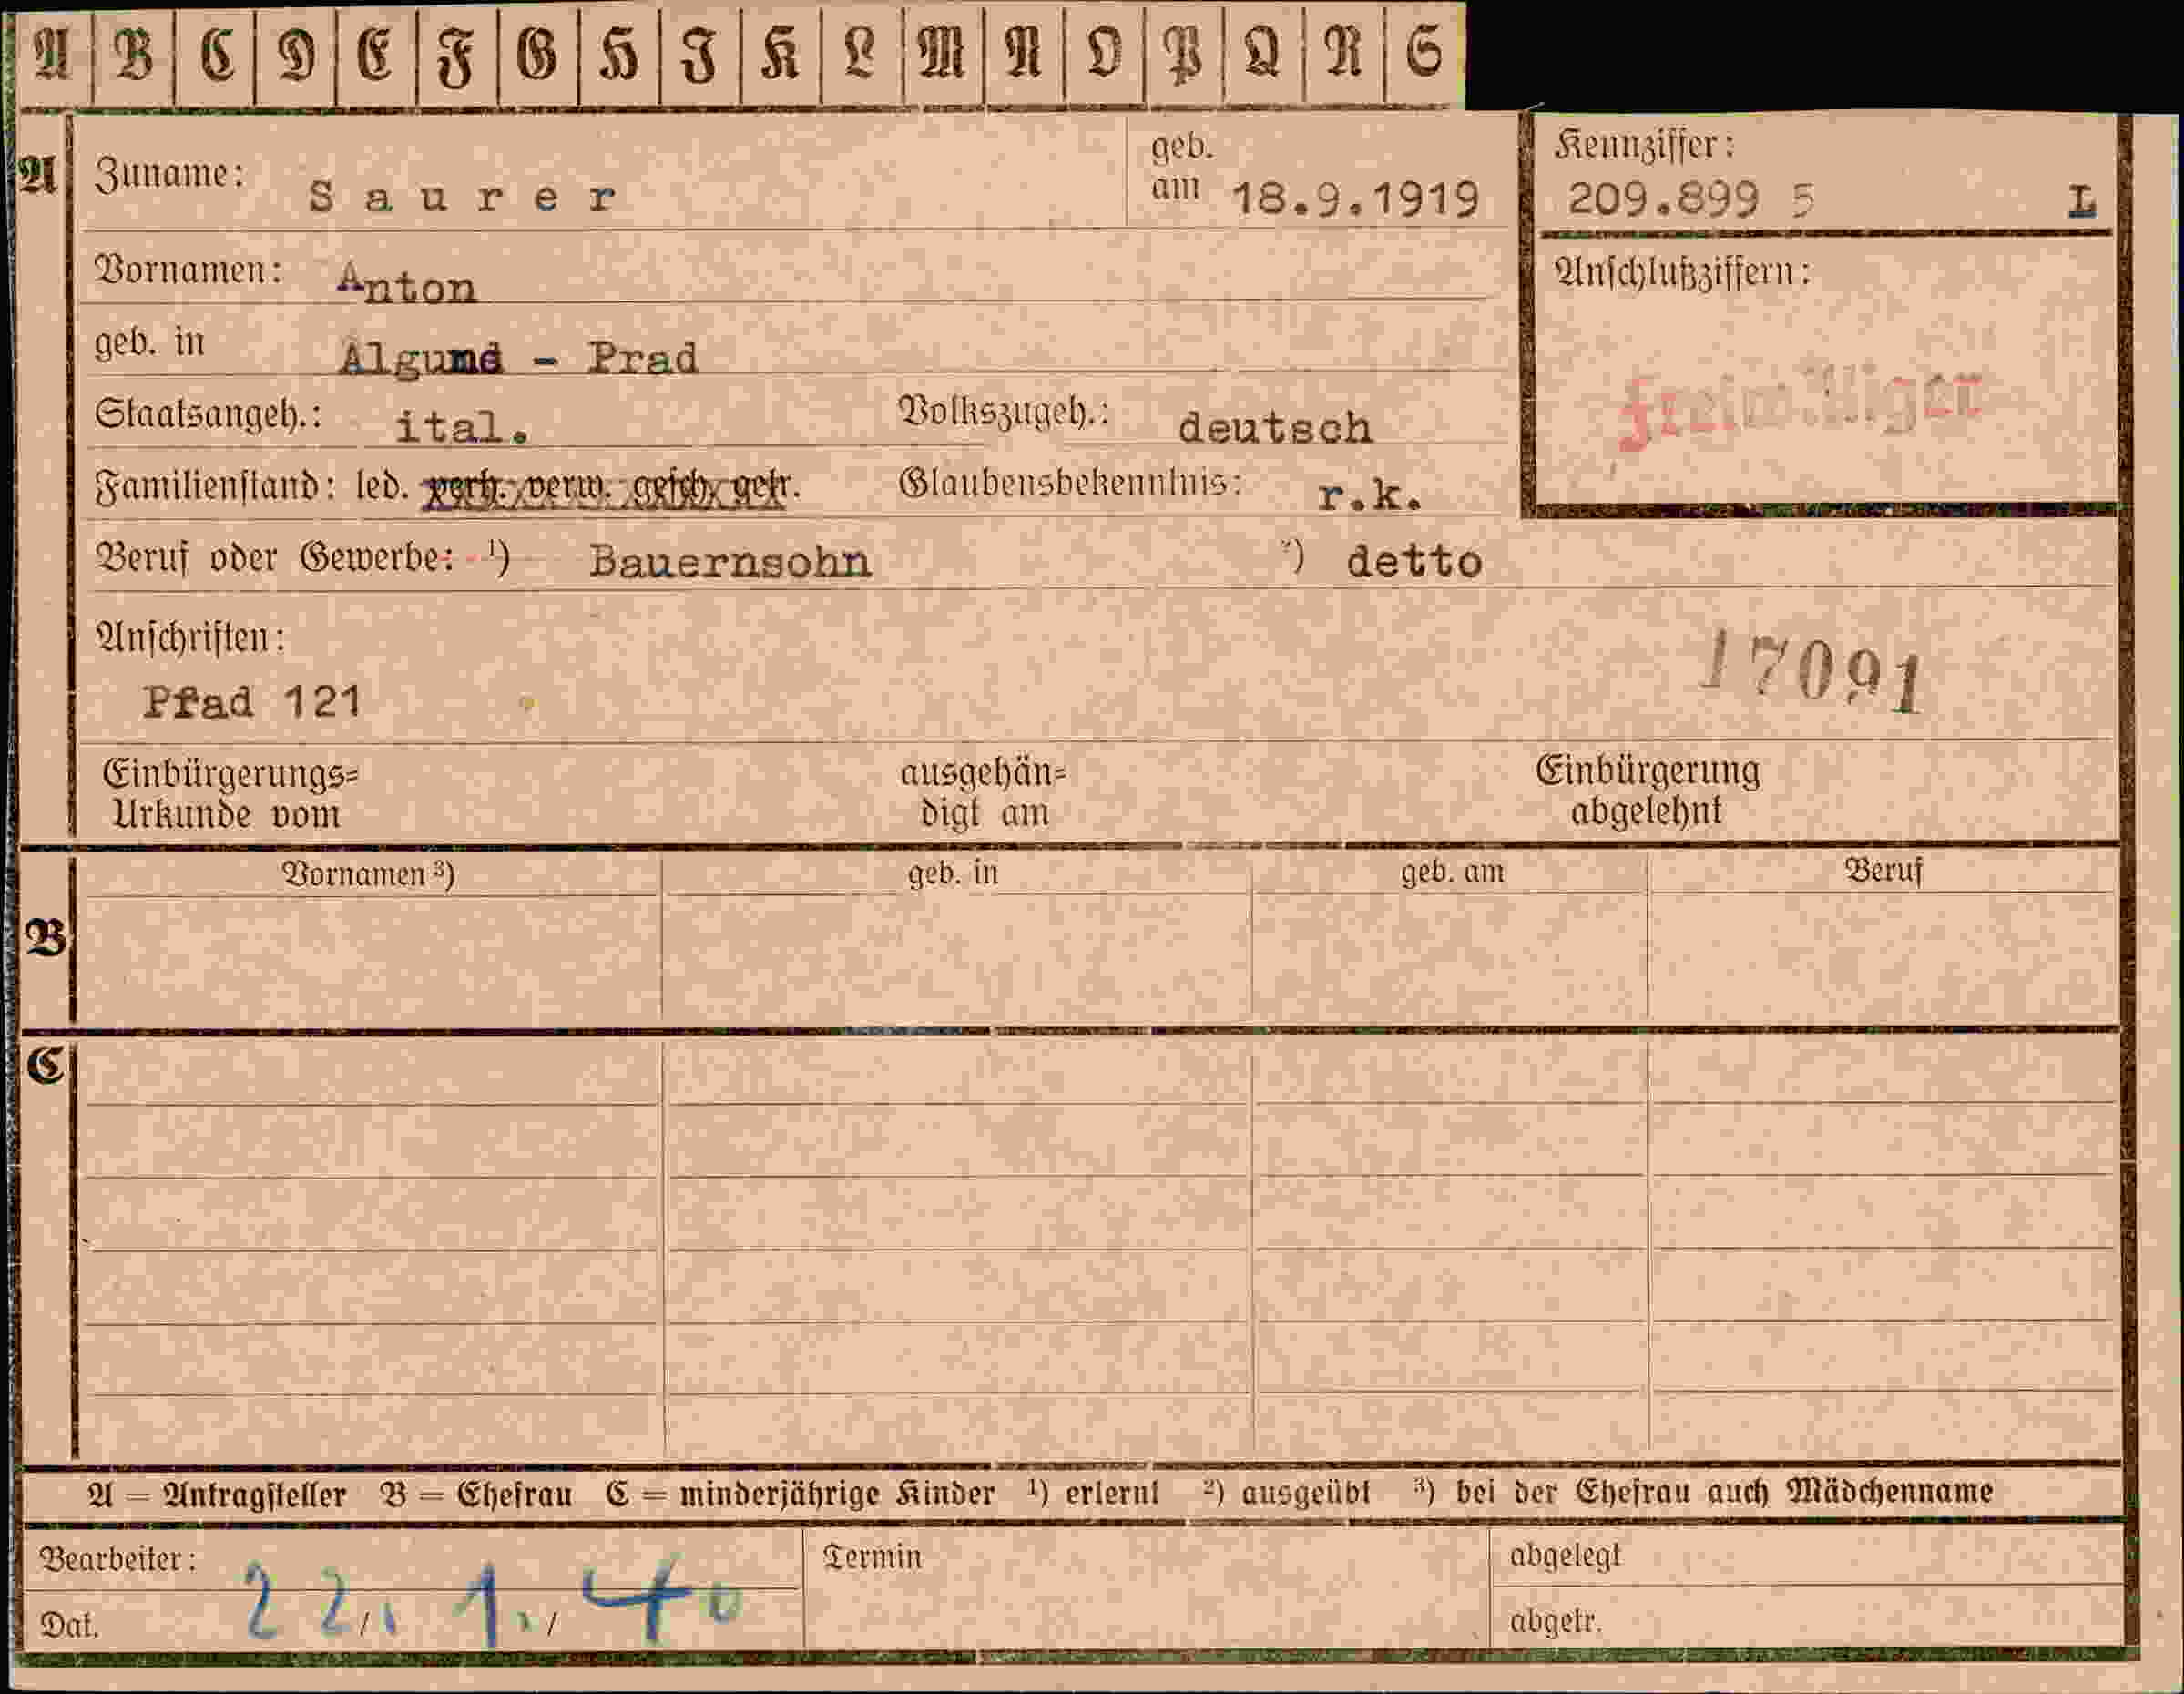 A B C D E F G H I K L M N O P Q R S
A Zuname: Saurer geb. am 18.9.1919 Kennziffer: 209.899 5 L
Vornamen: Anton Anschlußziffern:
geb. in Algund - Prad
Freiwilliger
Staatsangeh.: ital. Volkszugeh.: deutsch
Familienstand: led. verh. verw. gesch. getr. Glaubensbekenntnis: r.k.
Beruf oder Gewerbe: ¹) Bauernsohn ²) detto
Anschriften:
17091
Pfad 121
Einbürgerungs= ausgehän= Einbürgerung
Urkunde vom digt am abgelehnt
Vornamen ³) geb. in geb. am Beruf
B
C
A = Antragsteller B = Ehefrau C = minderjährige Kinder ¹) erlernt ²) ausgeübt ³) bei der Ehefrau auch Mädchenname
Bearbeiter: Termin abgelegt
Dat. 22./1./40 abgetr.